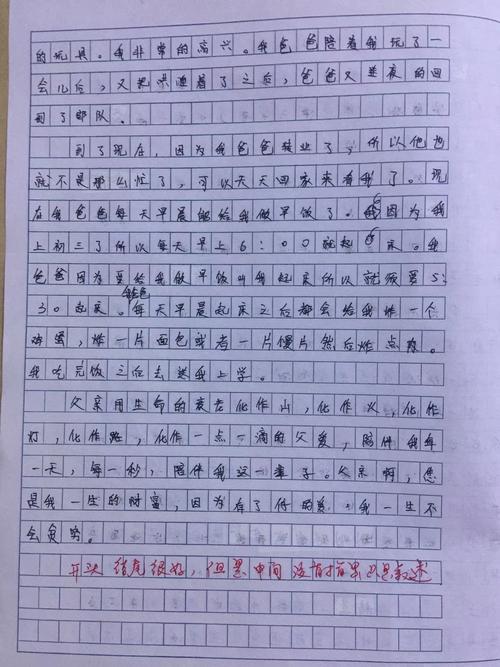 的玩具。我非常的高兴。我爸爸陪着我玩了一
会儿后，又把哄睡着了之后，爸爸又连夜的回
到了部队。
到了现在，因为我爸爸转业了，所以他也
就不是那么忙了，可以天天回家来看我了。现
在我爸爸每天早晨能给我做早饭了。因为我
上初三了所以每天早上6:00就起床。我
爸爸因为要给我做早饭叫我起床所以就须要5:
30起床。我爸爸每天早晨起床之后都会给我炸一个
鸡蛋，炸一片面包或者一片馒片然后炸点
我吃完饭之后去送我上学。
父亲用生命的衰老化作山，化作火，化作
灯，化作路，化作一点一滴的父爱，陪伴我每
一天，每一秒，陪伴我这一辈子。父亲啊，您
是我一生的财富，因为有了你的爱，我一生不
会贫穷。
开头结尾很好，但是中间没有